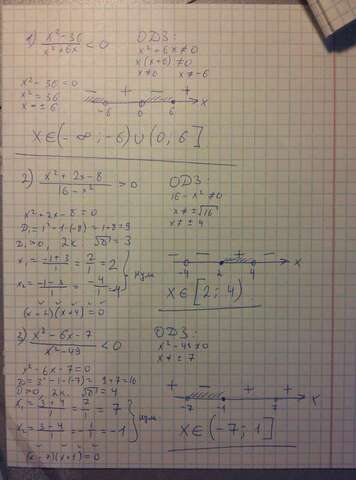 1) x²-36/x²+6x < 0 ОДЗ:
x²+6x≠0
x(x+6)≠0
x≠0 x≠-6
x²-36=0
x²=36
x=±6
- + - + x
-6 0 6
x∈(-∞;-6)∪(0;6]
2) x²+2x-8/16-x² > 0 ОДЗ:
16-x²≠0
x≠±√16
x≠±4
x²+2x-8=0
D₁=1²-1·(-8)=1+8=9
D₁>0, 2к. √D=3
x₁=-1+3/1=2/1=2
x₂=-1-3/1=-4/1=-4
нули
(x-2)(x+4)=0
- - + - x
-4 2 4
x∈[2;4)
3) x²-6x-7/x²-49 < 0 ОДЗ:
x²-49≠0
x≠±7
x²-6x-7=0
D=3²-1·(-7)=9+7=16
D>0, 2к. √D=4
x₁=3+4/1=7/1=7
x₂=3-4/1=-1/1=-1
нули
(x-7)(x+1)=0
+ - + + x
-7 -1 7
x∈(-7;1]